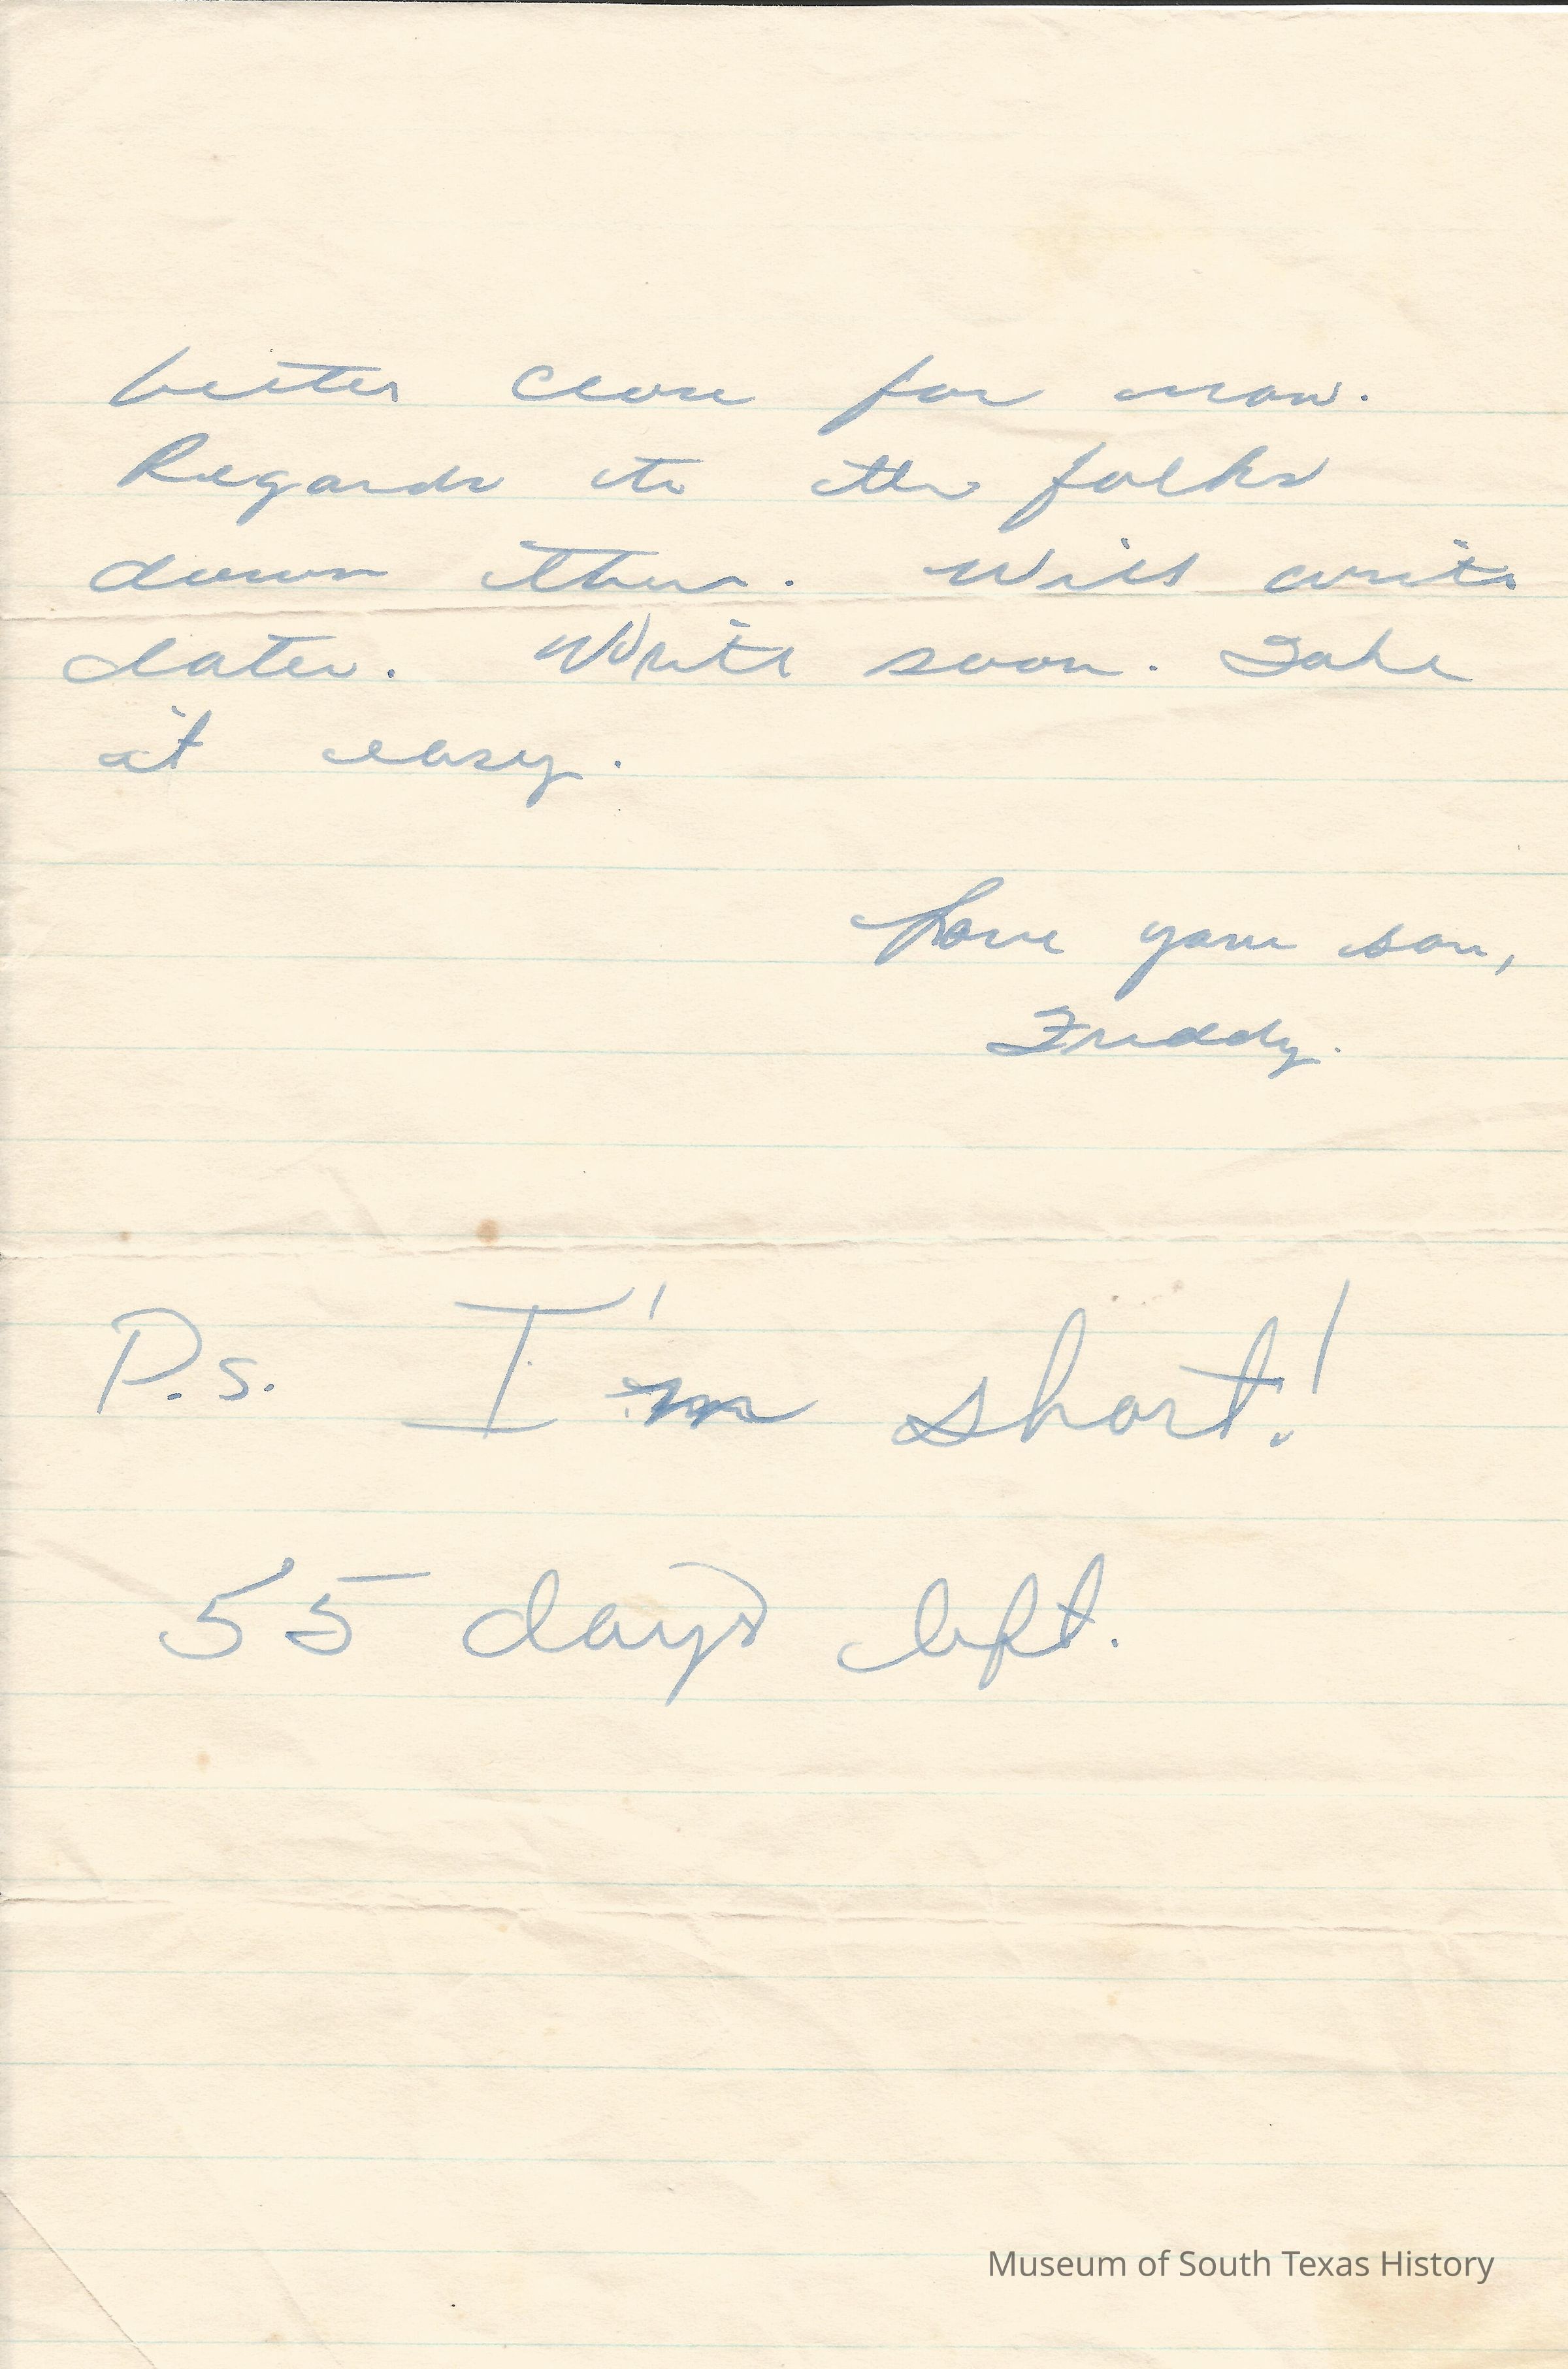 better close for now.
Regards to the folks
down there. Will write
later. Write soon. Take
it easy.
Love your son,
Freddy.
P.s. I'm short!
55 days left.
Museum of South Texas History